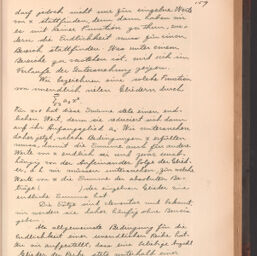 159
darf jedoch nicht nur für einzelne Werte
von x stattfinden, denn dann haben wir
es mit keiner Function zu thun, son-
dern die Endlichkeit muss für einen
Bereich stattfinden. Was unter einem
Bereiche zu verstehen ist, wird sich im
Verlaufe der Untersuchung zeigen.
Wir bezeichnen eine solche Function
von unendlich vielen Gliedern durch
Für x=0 hat diese Summe stets einen end-
lichen Wert, denn sie reducirt sich dann
auf ihr Anfangsglied a₀. Wir untersuchen
daher jetzt, welche Bedingungen x erfüllen
müsse, damit die Summe auch für andere
Werte von x endlich sei und zwar unab-
hängig von der Aufeinanderfolge der Glie-
der, d. h. wir müssen untersuchen, für welche
Werte von x die Summe der absoluten Be-
träge ( ) der einzelnen Glieder eine
endliche Summe hat.
Die Sätze sind elementar und bekannt,
wir werden sie daher häufig ohne Beweis
geben.
Als allgemeinste Bedingung für die
Endlichkeit einer unendlichen Reihe hat-
ten wir aufgestellt, dass eine beliebige Anzahl
Glieder der Reihe stets unterhalb einer